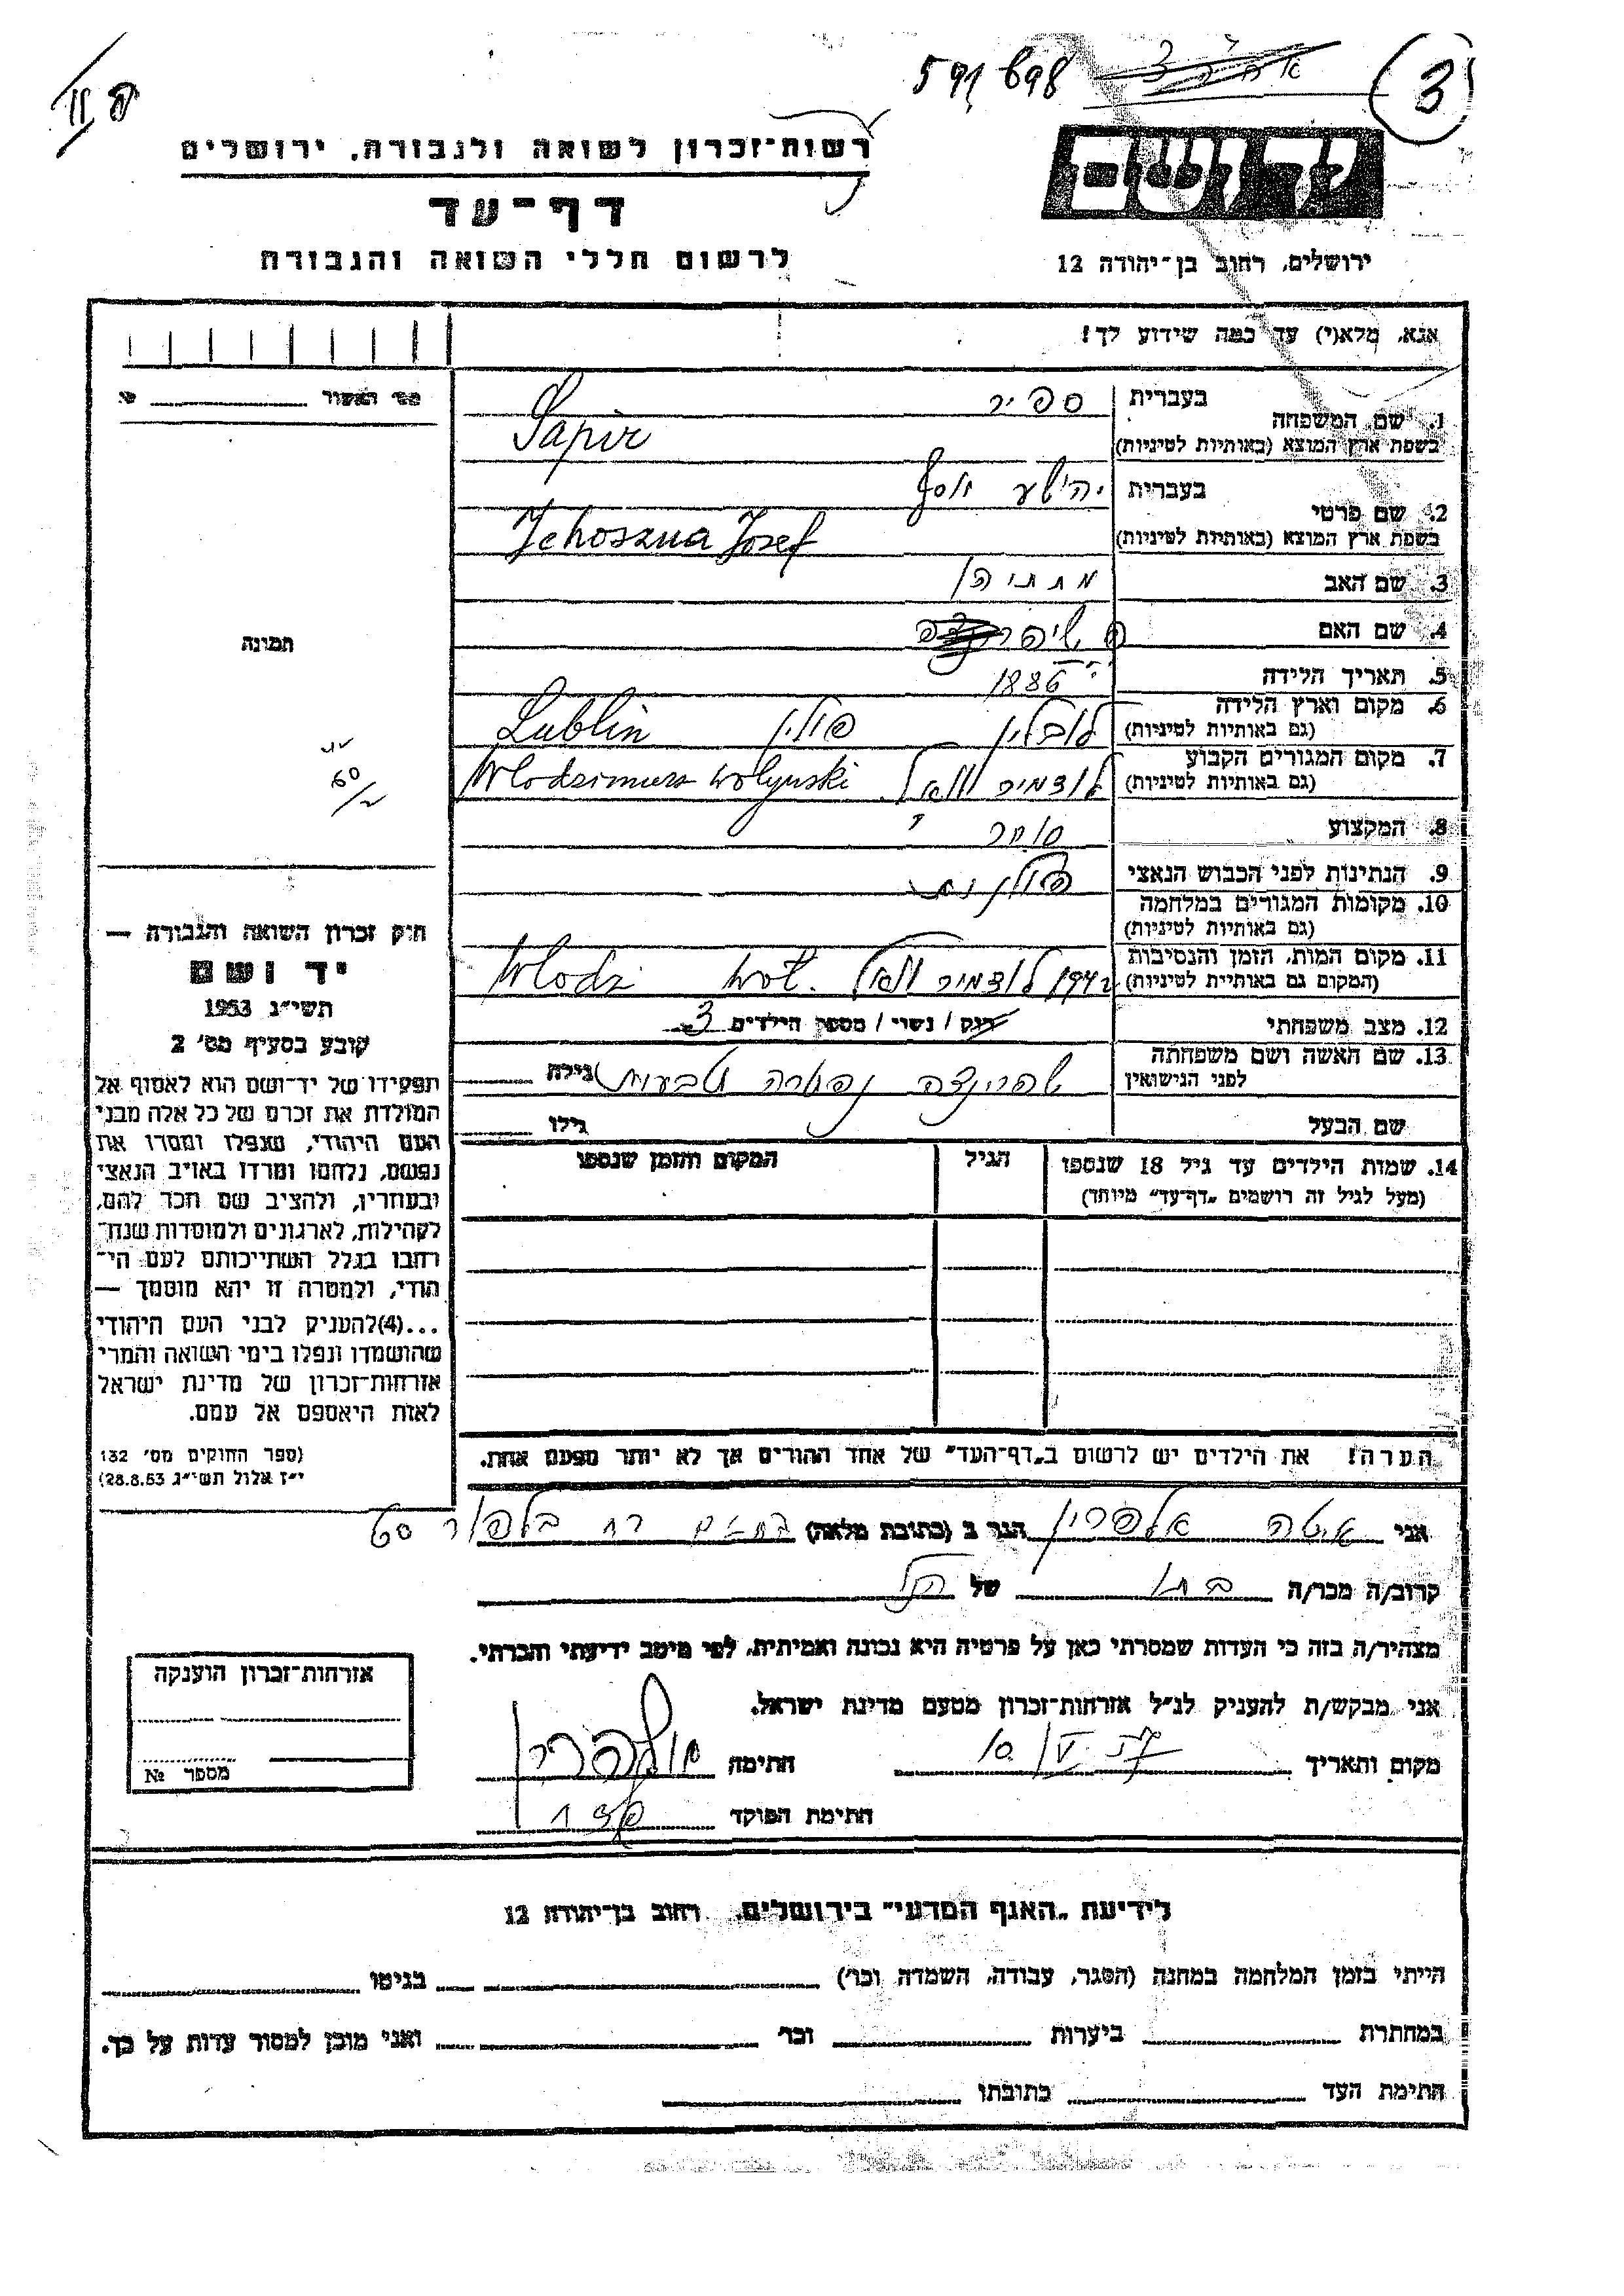 591 698
3
רשות־זכרון לשואה ולגבורה, ירושלים
דף־עד
לרשום חללי השואה והגבורה
יד ושם
ירושלים, רחוב בן־יהודה 12
אנא, מלא(י) עד כמה שידוע לך!
1. שם המשפחה
בעברית ספיר
בשפת ארץ המוצא (באותיות לטיניות) Sapir
2. שם פרטי
בעברית יהושע יוסף
בשפת ארץ המוצא (באותיות לטיניות) Jehoszua Josef
3. שם האב מתתיהו
4. שם האם
5. תאריך הלידה 1886
6. מקום וארץ הלידה לובלין פולין Lublin
(גם באותיות לטיניות)
7. מקום המגורים הקבוע לודמיר Wlodzimierz Wolynski
(גם באותיות לטיניות)
8. המקצוע סוחר
9. הנתינות לפני הכבוש הנאצי פולנית
10. מקומות המגורים במלחמה
(גם באותיות לטיניות)
11. מקום המות, הזמן והנסיבות 1942 לודמיר Wlodz Woł.
(המקום גם באותיות לטיניות)
12. מצב משפחתי רווק / נשוי / מספר הילדים 3
13. שם האשה ושם משפחתה שפרינצה
לפני הנישואין גילה
שם הבעל גילו
14. שמות הילדים עד גיל 18 שנספו הגיל המקום והזמן שנספו
(מעל לגיל זה רושמים „דף־עד” מיוחד)
הערה! את הילדים יש לרשום ב„דף־העד” של אחד ההורים אך לא יותר מפעם אחת.
תמונה
חוק זכרון השואה והגבורה —
יד ושם
תשי״ג 1953
קובע בסעיף מס׳ 2
תפקידו של יד־ושם הוא לאסוף אל
המולדת את זכרם של כל אלה מבני
העם היהודי, שנפלו ומסרו את
נפשם, נלחמו ומרדו באויב הנאצי
ובעוזריו, ולהציב שם וזכר להם,
לקהילות, לארגונים ולמוסדות שנח־
רבו בגלל השתייכותם לעם הי־
הודי, ולמטרה זו יהא מוסמך —
...(4) להעניק לבני העם היהודי
שהושמדו ונפלו בימי השואה והמרי
אזרחות־זכרון של מדינת ישראל
לאות היאספם אל עמם.
(ספר החוקים מס׳ 132
י״ז אלול תשי״ג 28.8.53)
אני איטה הגר ב (כתובת מלאה) בת ים רח בלפור
קרוב/ה מכר/ה בתו של הנ״ל
מצהיר/ה בזה כי העדות שמסרתי כאן על פרטיה היא נכונה ואמיתית, לפי מיטב ידיעתי והכרתי.
אני מבקש/ת להעניק לנ״ל אזרחות־זכרון מטעם מדינת ישראל.
מקום ותאריך חתימה
חתימת הפוקד
אזרחות־זכרון הוענקה
מספר №
לידיעת „האגף המדעי” בירושלים, רחוב בן־יהודה 12
הייתי בזמן המלחמה במחנה (הסגר, עבודה, השמדה וכו׳) בגיטו
במחתרת ביערות וכו׳ ואני מוכן למסור עדות על כך.
חתימת העד כתובתו